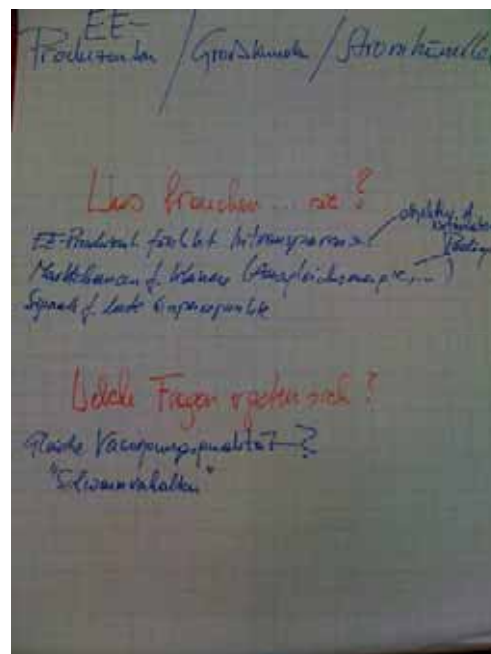 EE-
Produzenten / Großkunde / Stromhändler
Was brauchen ... sie ?
EE-Produzent
Marktchancen f. kleinere (Ausgleichsenergie, ...)
Signale f. gute Einspeisepunkte
Welche Fragen ergeben sich ?
Gleiche Versorgungsqualität ?
"Schwarmverhalten"